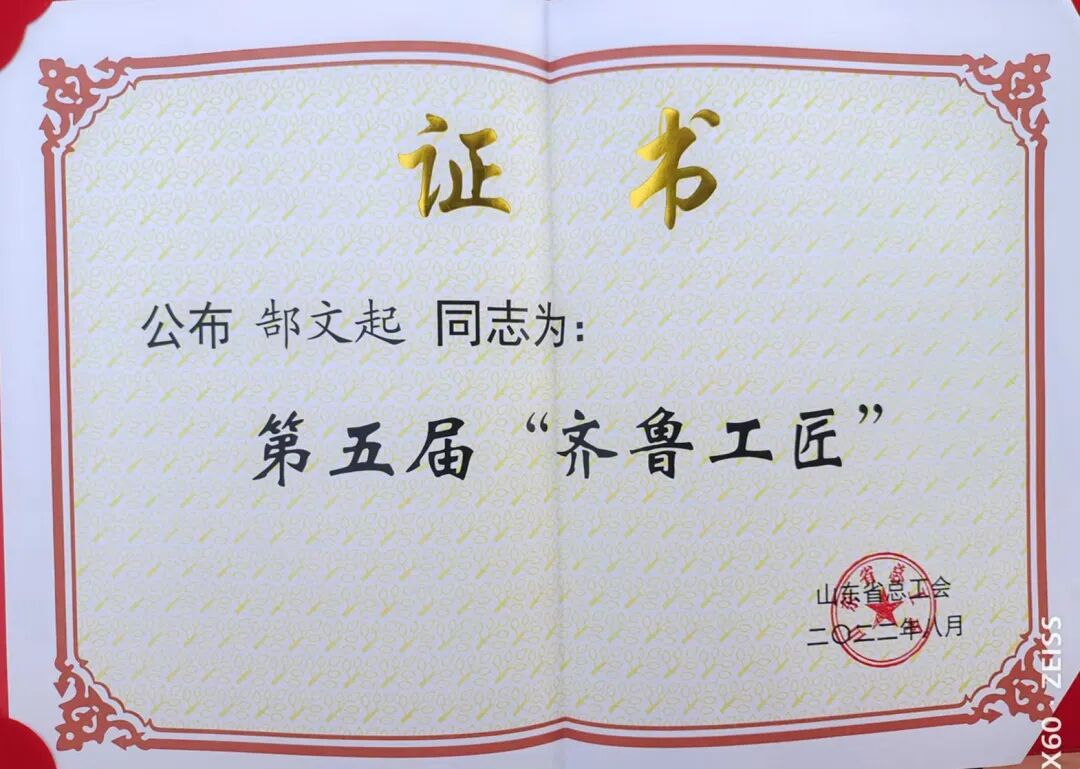 证书
公布 郜文起 同志为：
第五届“齐鲁工匠”
山东省总工会
二〇二二年八月
X60 · ZEISS